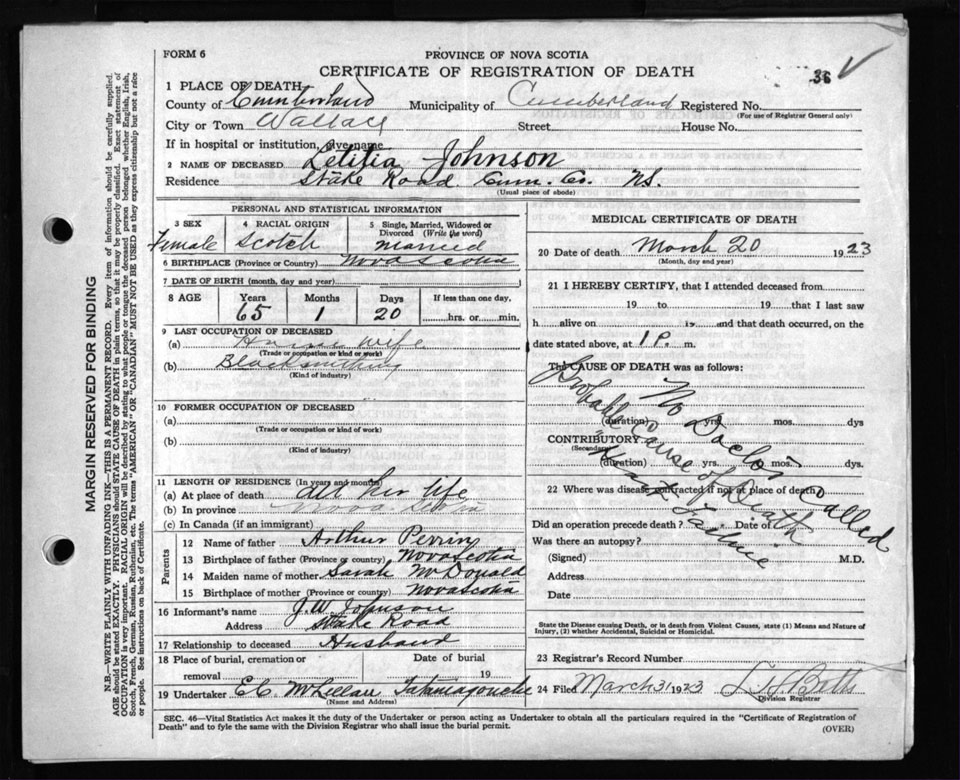 FORM 6
PROVINCE OF NOVA SCOTIA
36
CERTIFICATE OF REGISTRATION OF DEATH
1 PLACE OF DEATH
County of Cumberland Municipality of Cumberland Registered No.
(For use of Registrar General only)
City or Town Wallace Street House No.
If in hospital or institution, give name
2 NAME OF DECEASED Letitia Johnson
Residence Stake Road Cum. Co. NS.
(Usual place of abode)
PERSONAL AND STATISTICAL INFORMATION
3 SEX 4 RACIAL ORIGIN 5 Single, Married, Widowed or
Divorced (Write the word)
Female Scotch Married
6 BIRTHPLACE (Province or Country) Nova Scotia
7 DATE OF BIRTH (month, day and year)
8 AGE Years Months Days If less than one day,
65 1 20 hrs. or min.
9 LAST OCCUPATION OF DECEASED
(a) House wife
(Trade or occupation or kind or work)
(b) Blacksmithing
(Kind of industry)
10 FORMER OCCUPATION OF DECEASED
(a)
(Trade or occupation or kind of work)
(b)
(Kind of industry)
11 LENGTH OF RESIDENCE (In years and months)
(a) At place of death all her life
(b) In province Nova Scotia
(c) In Canada (if an immigrant)
Parents
12 Name of father Arthur Perrin
13 Birthplace of father (Province or country) Nova Scotia
14 Maiden name of mother Sarah McDonald
15 Birthplace of mother (Province or country) Nova Scotia
16 Informant's name J.W. Johnson
Address Stake Road
17 Relationship to deceased Husband
18 Place of burial, cremation or Date of burial
removal 19
19 Undertaker E.C. McLellan Tatamagouche
(Name and Address)
MEDICAL CERTIFICATE OF DEATH
20 Date of death March 20 1923
(Month, day and year)
21 I HEREBY CERTIFY, that I attended deceased from
19 to 19 that I last saw
h alive on is and that death occurred, on
date stated above, at 1 P. m.
The CAUSE OF DEATH was as follows:
No Doctor Called
Probable Cause of Death
Heart Failure
(duration) yrs. mos. dys
CONTRIBUTORY
(Secondary)
(duration) yrs. mos. dys.
22 Where was disease contracted if not at place of death?
Did an operation precede death? Date of
Was there an autopsy?
(Signed) M.D.
Address
Date
State the Disease causing Death, or in death from Violent Causes, state (1) Means and Nature of
Injury, (2) whether Accidental, Suicidal or Homicidal.
23 Registrar's Record Number
24 Filed March 31 1923
Division Registrar
SEC. 46—Vital Statistics Act makes it the duty of the Undertaker or person acting as Undertaker to obtain all the particulars required in the "Certificate of Registration of
Death" and to fyle the same with the Division Registrar who shall issue the burial permit.
(OVER)
MARGIN RESERVED FOR BINDING
N.B.—WRITE PLAINLY WITH UNFADING INK—THIS IS A PERMANENT RECORD. Every item of information should be carefully supplied.
AGE should be stated EXACTLY. PHYSICIANS should STATE CAUSE OF DEATH in plain terms, so that it may be properly classified. Exact statement of
OCCUPATION is very important. RACIAL ORIGIN will be described by stating to what people or tongue the deceased person belonged whether English, Irish,
Scotch, French, German, Russian, Ruthenian, etc. The terms "AMERICAN" OR "CANADIAN" MUST NOT BE USED as they express citizenship but not a race
or people. See instructions on back of Certificate.